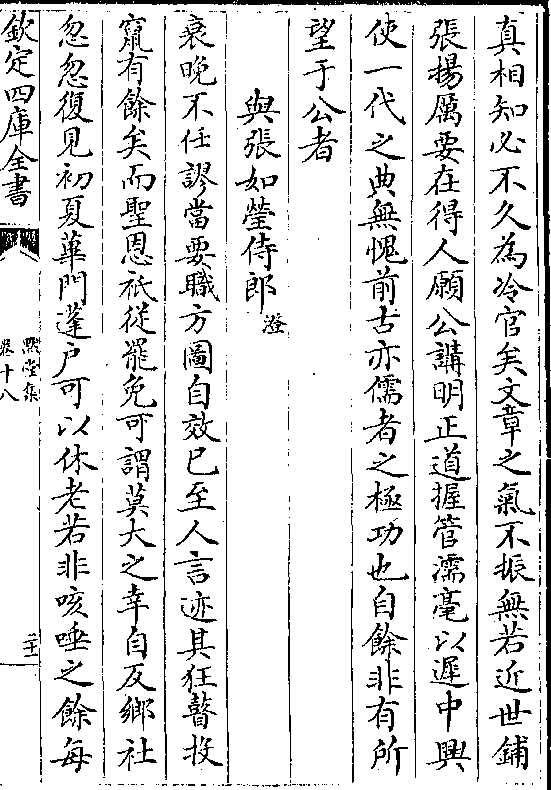 真相知必不久為冷官矣文章之氣不振無若近世鋪
張揚厲要在得人願公講明正道握管濡毫以遲中興
使一代之典無愧前古亦儒者之極功也自餘非有所
望于公者
與張如瑩侍郎澄
衰晚不任謬當要職方圖自效已至人言迹其狂瞽投
竄有餘矣而聖恩祇從罷免可謂莫大之幸自反鄉社
忽忽復見初夏蓽門蓬户可以休老若非咳唾之餘每
欽定四庫全書
卷十八
二十一